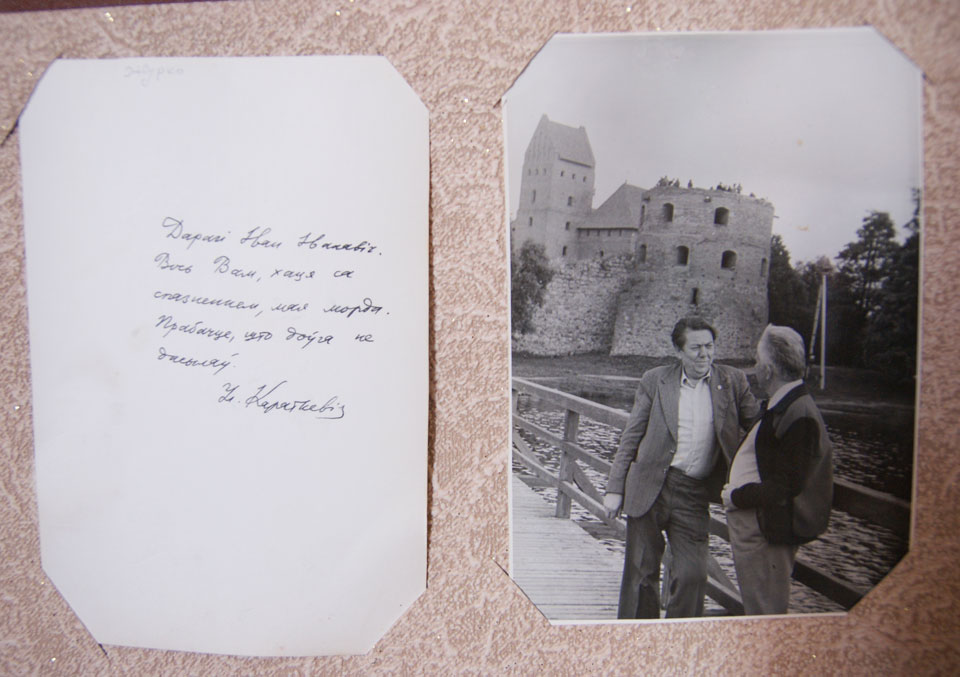 Дарагі Іван Іванавіч.
Вось Вам, хаця са
спазненнем, мая морда.
Прабачце, што доўга не
дасылаў.
Ул. Караткевіч